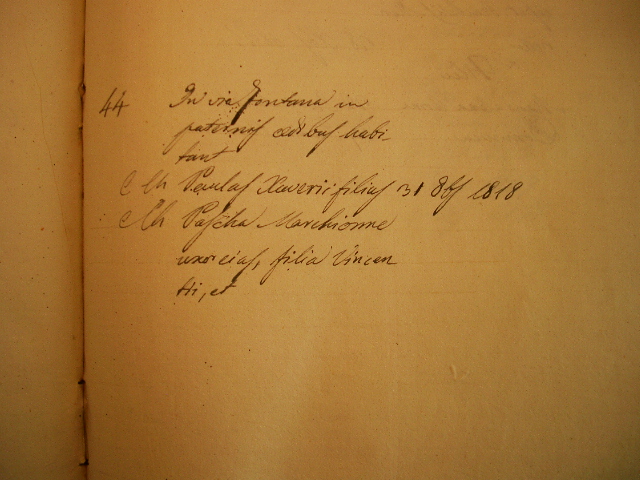 44 In via Fontana in
paternis ædibus habi-
tant
C Ch Paulus Xaverii filius 31 8bs 1818
C Ch Pascha Marchionne
uxor eius, filia Vincen
tii, et